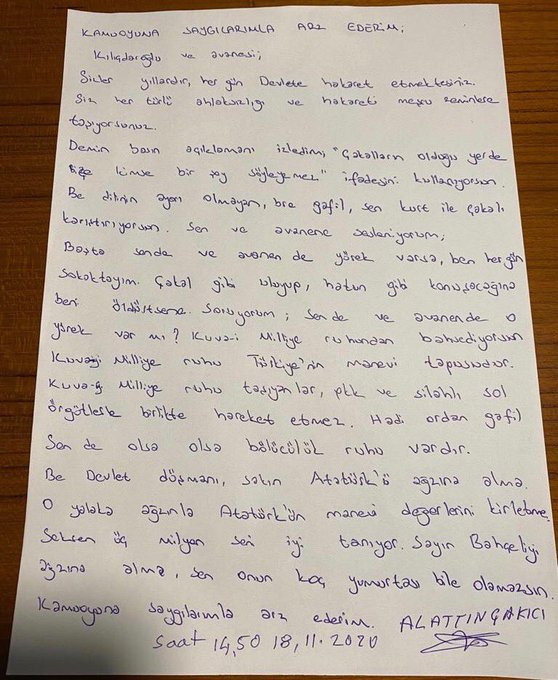 KAMUOYUNA SAYGILARIMLA ARZ EDERİM;
Kılıçdaroğlu ve avanesi;
Sizler yıllardır, her gün Devlete hakaret etmektesiniz.
Siz her türlü ahlaksızlığı ve hakareti meşru zeminlere
taşıyorsunuz.
Demin basın açıklamanı izledim; "Çakalların olduğu yerde
bize kimse bir şey söyleyemez" ifadesini kullanıyorsun.
Be dilinin ayarı olmayan, bre gafil, sen kurt ile çakalı
karıştırıyorsun. Sen ve avanene sesleniyorum;
Başta sende ve avanen de yürek varsa, ben her gün
sokaktayım. Çakal gibi uluyup, hatun gibi konuşacağına
beni öldürtsene. Soruyorum; sende ve avanende o
yürek var mı? Kuva-i Milliye ruhundan bahsediyorsun
Kuva-i Milliye ruhu Türkiye'nin manevi tapusudur.
Kuva-i Milliye ruhu taşıyanlar, pkk ve silahlı sol
örgütlerle birlikte hareket etmez. Hadi ordan gafil
Sen de olsa olsa bölücülük ruhu vardır.
Be Devlet düşmanı, sakın Atatürk'ü ağzına alma.
O yalaka ağzınla Atatürk'ün manevi değerlerini kirletme.
Seksen üç milyon seni iyi tanıyor. Sayın Bahçeliyi
ağzına alma, sen onun koç yumurtası bile olamazsın.
Kamuoyuna saygılarımla arz ederim. ALATTİN ÇAKICI
saat 14,50 18,11.2020